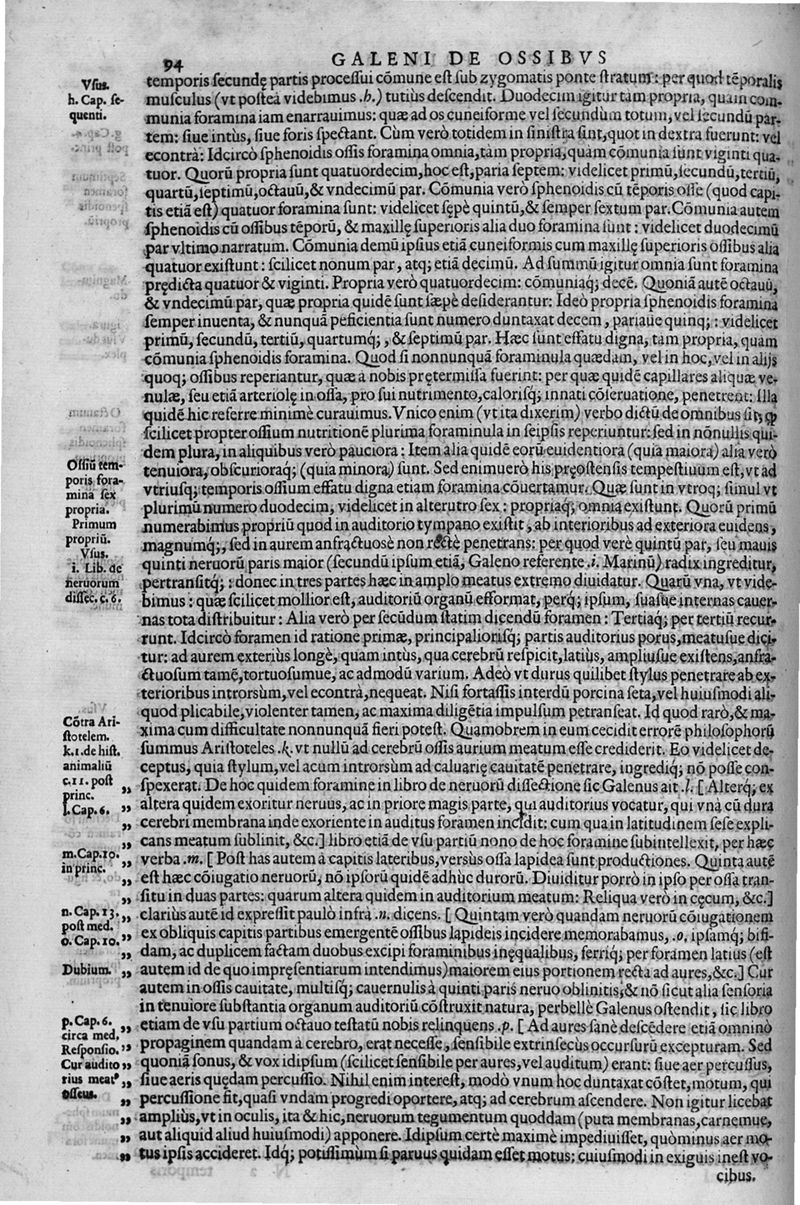 94
GALENI DE OSSIBVS
temporis secundę partis processui cõmune est sub zygomatis ponte stratum: per quod tẽporalis
Vsus.
h. Cap. se-
quenti.
musculus (vt postea videbimus .h.) tutiùs descendit. Duodecim igitur tam propria, quàm com-
munia foramina iam enarrauimus: quæ ad os cuneiforme vel secundùm totum, vel secundũ par-
tem: siue intùs, siue foris spectant. Cùm verò totidem in sinistra sint, quot in dextra fuerunt: vel
econtrà: Idcircò sphenoidis ossis foramina omnia, tàm propria, quàm cõmunia sunt viginti qua-
tuor. Quorũ propria sunt quatuordecim, hoc est, paria septem: videlicet primũ, secundũ, tertiũ,
quartũ, septimũ, octauũ, & vndecimũ par. Cõmunia verò sphenoidis cũ tẽporis osse (quod capi-
tis etiã est) quatuor foramina sunt: videlicet sępè quintũ, & semper sextum par. Cõmunia autem
sphenoidis cũ ossibus tẽporũ, & maxillę superioris alia duo foramina sunt: videlicet duodecimũ
par vltimo narratum. Cõmunia demũ ipsius etiã cuneiformis cum maxillę superioris ossibus alia
quatuor existunt: scilicet nonum par, atq; etiã decimũ. Ad summũ igitur omnia sunt foramina
prędicta quatuor & viginti. Propria verò quatuordecim: cõmuniaq; decẽ. Quoniã autẽ octauũ,
& vndecimũ par, quæ propria quidẽ sunt sæpè desiderantur: Ideò propria sphenoidis foramina
semper inuenta, & nunquã deficientia sunt numero duntaxat decem, pariaue quinq; : videlicet
primũ, secundũ, tertiũ, quartumq; , & septimũ par. Hæc sunt effatu digna, tam propria, quam
cõmunia sphenoidis foramina. Quod si nonnunquã foraminula quædam, vel in hoc, vel in alijs
quoq; ossibus reperiantur, quæ à nobis prętermissa fuerint: per quæ quidẽ capillares aliquæ ve-
nulæ, seu etiã arteriolę in ossa, pro sui nutrimento, calorisq; innati cõseruatione, penetrent: illa
quidẽ hic referre minimè curauimus. Vnico enim (vt ita dixerim) verbo dictũ de omnibus sit, ꝙ
scilicet propter ossium nutritionẽ plurima foraminula in seipsis reperiuntur: sed in nõnullis qui-
dem plura, in aliquibus verò pauciora: Item alia quidẽ eorũ euidentiora (quia maiora) alia verò
Ossiũ tem-
poris fora-
mina sex
propria.
Primum
propriũ.
Vsus.
i. Lib. de
neruorum
dissec. c. 6.
tenuiora, obscurioraq; (quia minora) sunt. Sed enimuerò his pręostensis tempestiuum est, vt ad
vtriusq; temporis ossium effatu digna etiam foramina cõuertamur. Quæ sunt in vtroq; simul vt
plurimũ numero duodecim, videlicet in alterutro sex: propriaq; omnia existunt. Quorũ primũ
numerabimus propriũ quod in auditorio tympano existit, ab interioribus ad exteriora euidens,
magnumq; , sed in aurem anfractuosè non rectè penetrans: per quod verè quintũ par, seu mauis
quinti neruorũ paris maior (secundũ ipsum etiã, Galeno referente .i. Marinũ) radix ingreditur,
pertransitq; : donec in tres partes hæc in amplo meatus extremo diuidatur. Quarũ vna, vt vide-
bimus: quæ scilicet mollior est, auditoriũ organũ efformat, perq; ipsum, suasue internas cauer-
nas tota distribuitur: Alia verò per secũdum statim dicendũ foramen: Tertiaq; per tertiũ recur-
runt. Idcircò foramen id ratione primæ, principaliorisq; partis auditorius porus, meatusue dici-
tur: ad aurem exteriùs longè, quam intùs, qua cerebrũ respicit, latiùs, ampliusue existens, anfra-
ctuosum tamẽ, tortuosumue, ac admodũ varium. Adeò vt durus quilibet stylus penetrare ab ex-
terioribus introrsùm, vel econtrà, nequeat. Nisi fortassis interdũ porcina seta, vel huiusmodi ali-
quod plicabile, violenter tamen, ac maxima diligẽtia impulsum petranseat. Id quod rarò, & ma-
Cõtra Ari-
stotelem.
k. 1. de hist.
animaliũ
c. 11. post
princ.
l. Cap. 6.
xima cum difficultate nonnunquã fieri potest. Quamobrem in eum cecidit errorẽ philosophorũ
summus Aristoteles .k. vt nullũ ad cerebrũ ossis aurium meatum esse crediderit. Eo videlicet de-
ceptus, quia stylum, vel acum introrsùm ad caluarię cauitatẽ penetrare, ingrediq; nõ posse con-
„ spexerat. De hoc quidem foramine in libro de neruorũ dissectione sic Galenus ait .l. [Alterq; ex
„ altera quidem exoritur neruus, ac in priore magis parte, qui auditorius vocatur, qui vnà cũ dura
„ cerebri membrana inde exoriente in auditus foramen incidit: cum qua in latitudinem sese expli-
„ cans meatum sublinit, &c.] libro etiã de vsu partiũ nono de hoc foramine subintellexit, per hæc
m. Cap. 10.
in princ.
„ verba .m. [Post has autem à capitis lateribus, versùs ossa lapidea sunt productiones. Quinta autẽ
„ est hæc cõiugatio neruorũ, nõ ipsorũ quidẽ adhùc durorũ. Diuiditur porrò in ipso per ossa tran-
„ situ in duas partes: quarum altera quidem in auditorium meatum: Reliqua verò in cęcum, &c.]
n. Cap. 13.
post med.
o. Cap. 10.
„ clariùs autẽ id expressit paulò infrà .n. dicens. [Quintam verò quandam neruorũ cõiugationem
„ ex obliquis capitis partibus emergentẽ ossibus lapideis incidere memorabamus, .o. ipsamq; bifi-
„ dam, ac duplicem factam duobus excipi foraminibus inęqualibus, ferriq; per foramen latius (est
Dubium.
„ autem id de quo impręsentiarum intendimus) maiorem eius portionem recta ad aures, &c.] Cur
autem in ossis cauitate, multisq; cauernulis à quinti paris neruo oblinitis, & nõ sicut alia sensoria
in tenuiore substantia organum auditoriũ cõstruxit natura, perbellè Galenus ostendit, sic libro
p. Cap. 6.
circa med.
Responsio.
Cur audito
rius meatꝰ
osseus.
„ etiam de vsu partium octauo testatũ nobis relinquens .p. [Ad aures sanè descẽdere etiã omninò
„ propaginem quandam à cerebro, erat necesse, sensibile extrinsecùs occursurũ excepturam. Sed
„ quoniã sonus, & vox idipsum (scilicet sensibile per aures, vel auditum) erant: siue aer percussus,
„ siue aeris quędam percussio. Nihil enim interest, modò vnum hoc duntaxat cõstet, motum, qui
„ percussione fit, quasi vndam progredi oportere, atq; ad cerebrum ascendere. Non igitur licebat
„ ampliùs, vt in oculis, ita & hic, neruorum tegumentum quoddam (puta membranas, carnemue,
„ aut aliquid aliud huiusmodi) apponere. Idipsum certè maximè impediuisset, quòminus aer mo-
„ tus ipsis accideret. Idq; potissimùm si paruus quidam esset motus: cuiusmodi in exiguis inest vo-
cibus.